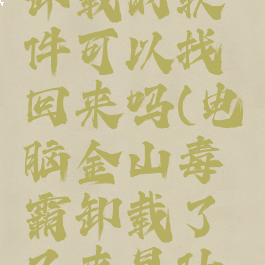 卸载的软
件可以找
回来吗(电
脑金山毒
霸卸载了